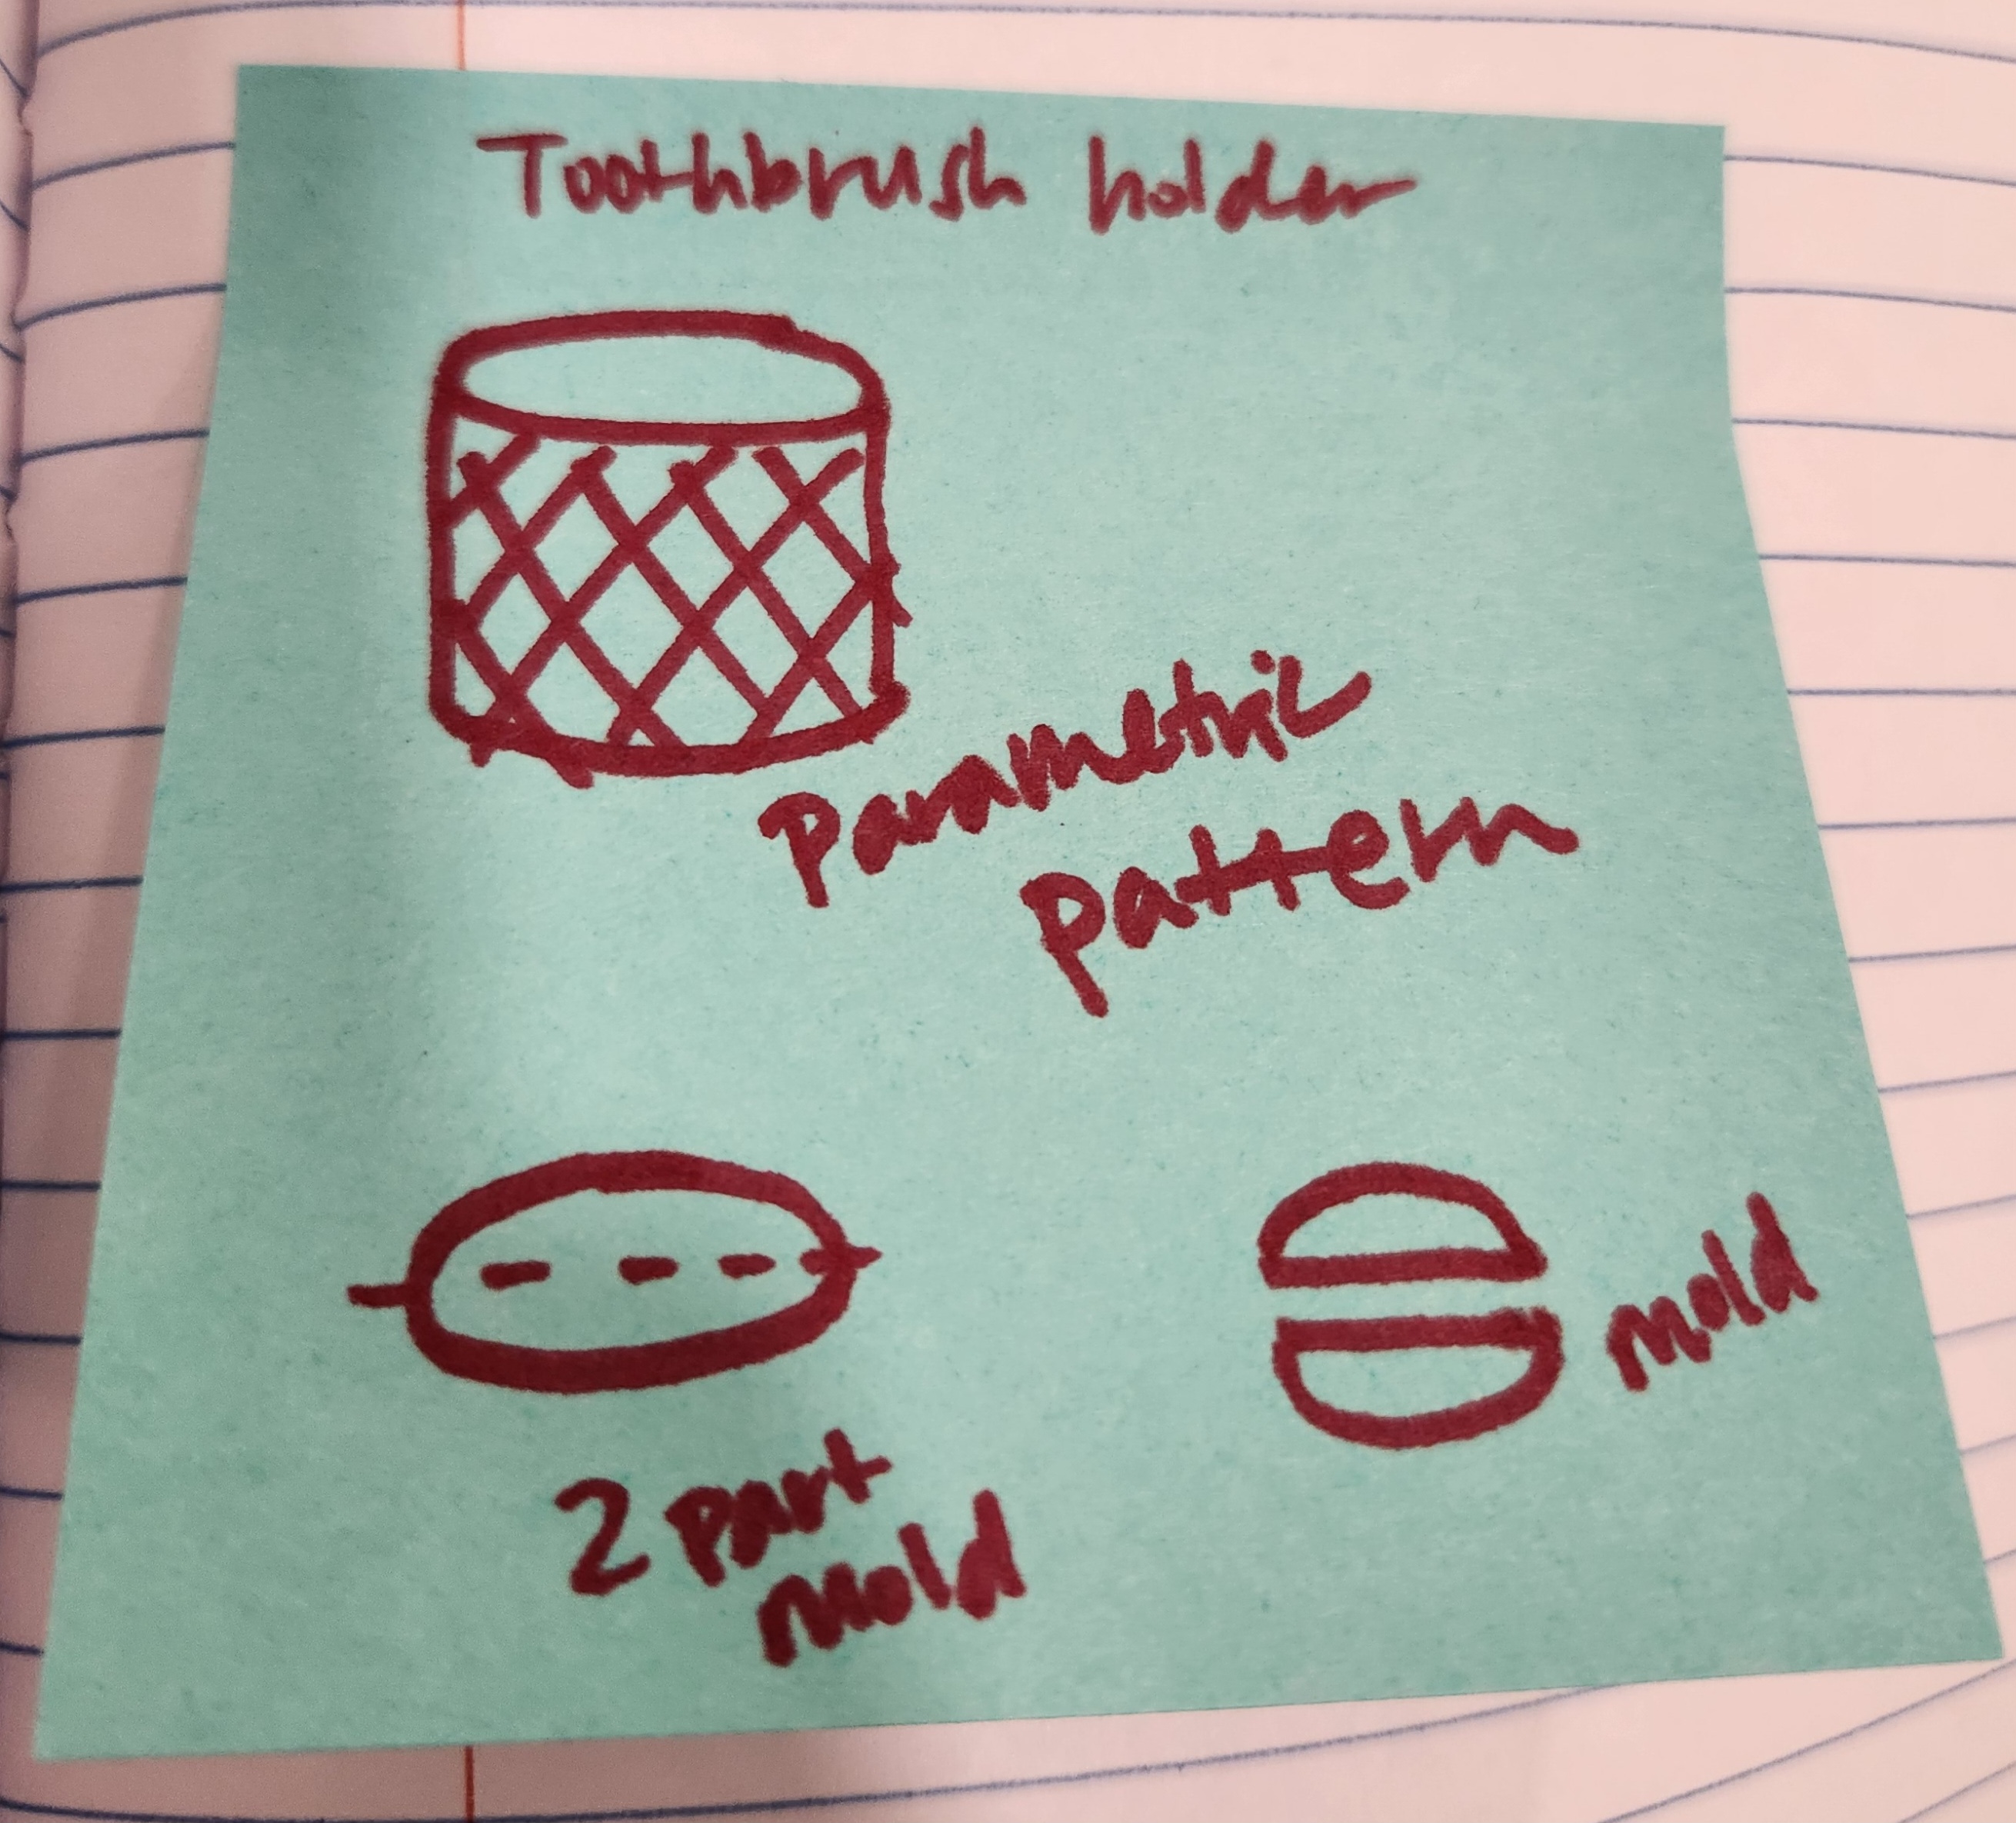 Toothbrush holder
Parametric
pattern
2 part
mold
mold